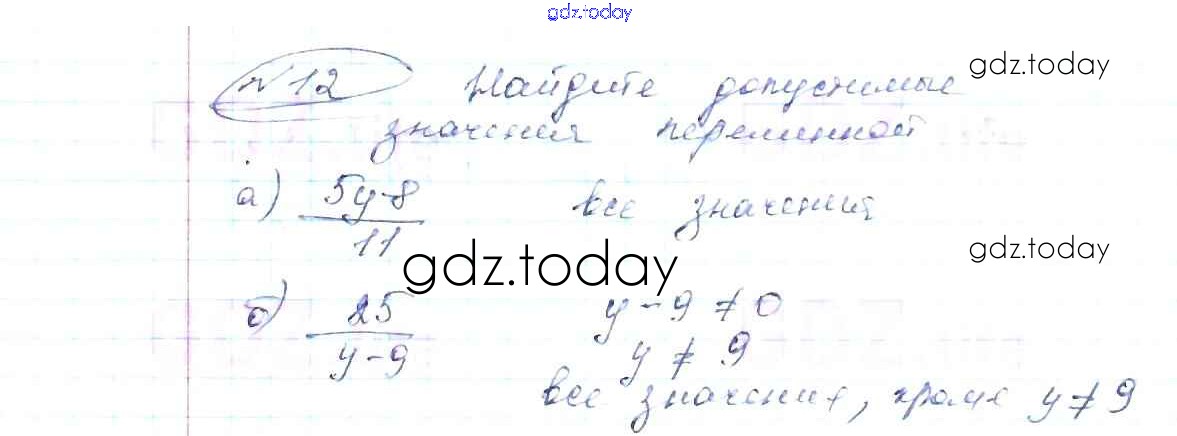 gdz.today
№12 Найдите допустимые
gdz.today
значения переменной
а) 5y-8 / 11 все значения
gdz.today
gdz.today
б) 25 / y-9 y-9≠0
y≠9
все значения, кроме y≠9